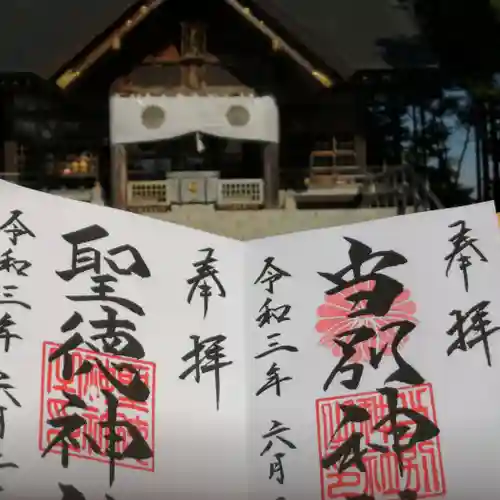 奉拝
当別神
令和三年六月
奉拝
聖徳神
令和三年六月二